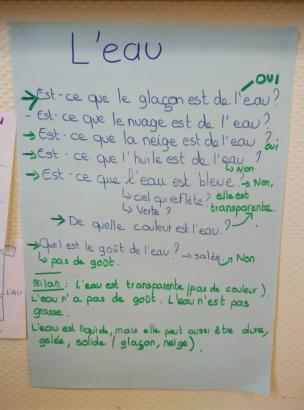 L'eau
OUI
→ Est-ce que le glaçon est de l'eau?
- Est-ce que le nuage est de l'eau?
→ Est-ce que la neige est de l'eau?
oui
→ Est-ce que l'huile est de l'eau?
↳ Non
→ Est-ce que l'eau est bleue? → Non,
↳ ciel qui reflète? elle est
↳ Verte? transparente.
→ De quelle couleur est l'eau?
→ Quel est le goût de l'eau? → salée
↳ pas de goût. ↳ Non
Bilan: L'eau est transparente (pas de couleur).
L'eau n'a pas de goût. L'eau n'est pas
grasse.
L'eau est liquide, mais elle peut aussi être dure,
gelée, solide (glaçon, neige).
EAU